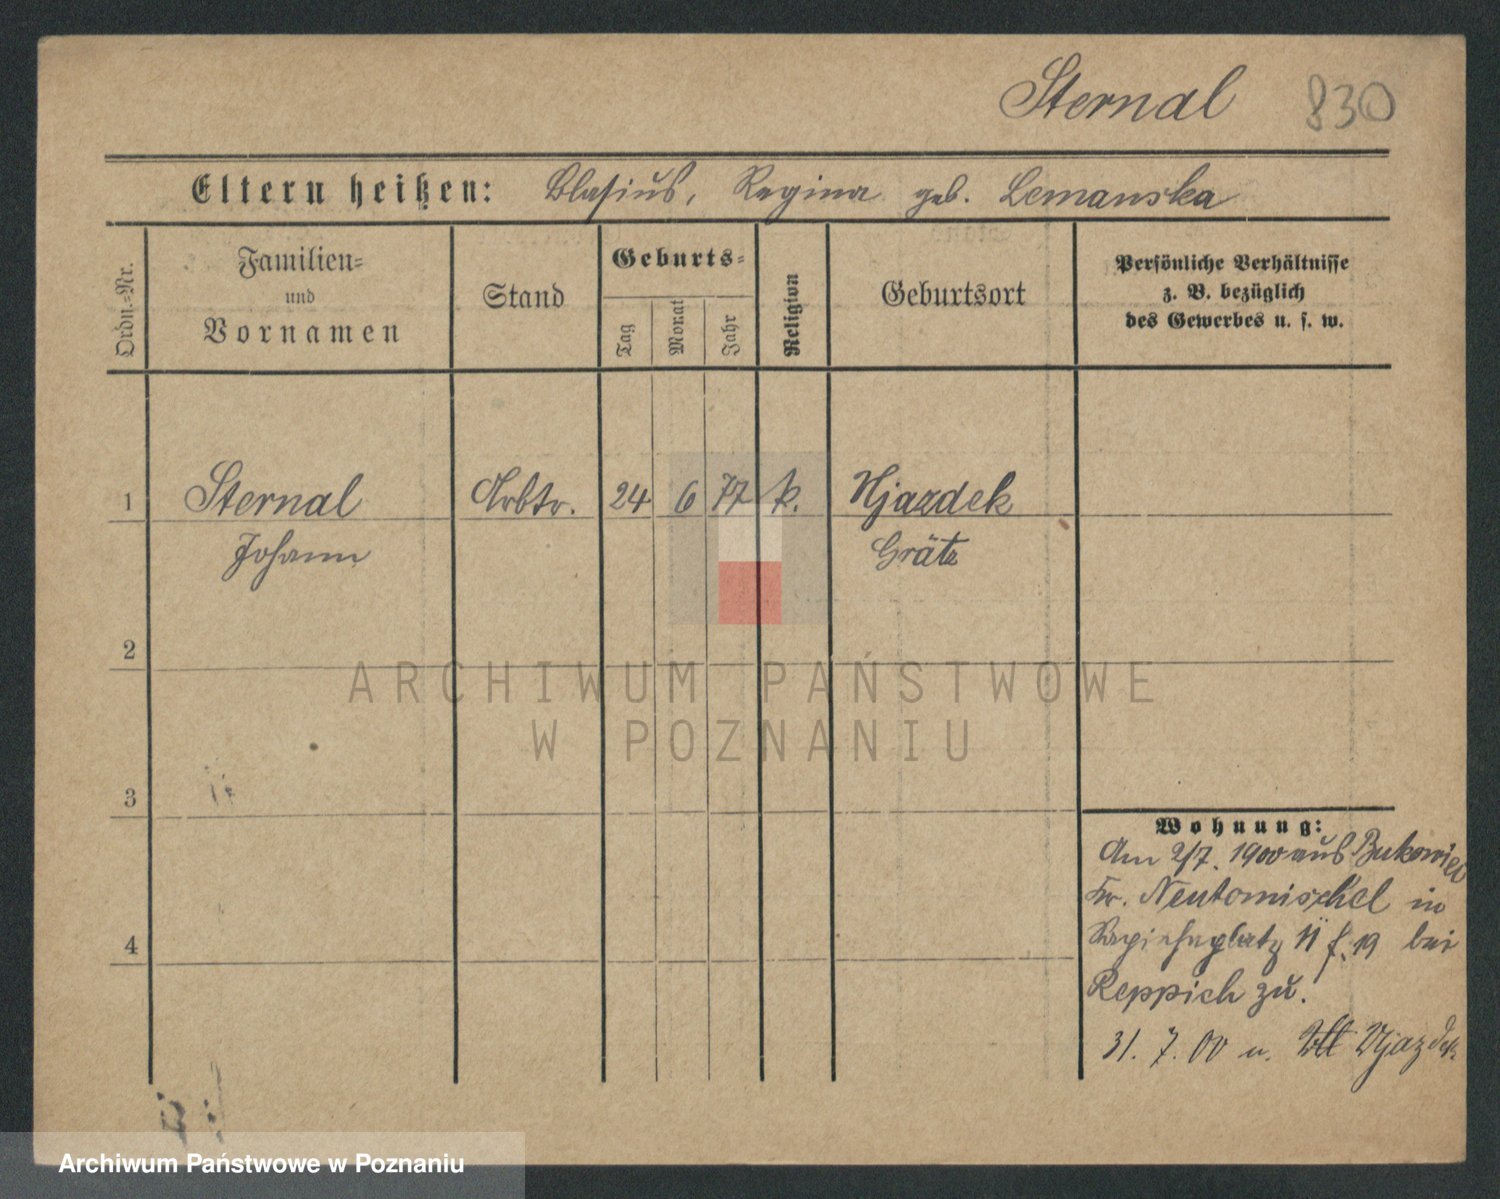 Sternal 830
Eltern heißen: Blasius, Regina geb. Lemanska
Ordn.=Nr.
Familien=
und
Vornamen
Stand
Geburts=
Tag
Monat
Jahr
Religion
Geburtsort
Persönliche Verhältnisse
z. B. bezüglich
des Gewerbes u. s. w.
1 Sternal Arbtr. 24 6 77 k. Ujazdek
Johann Grätz
2
3
4
Wohnung:
Am 2/7. 1900 aus Bukowiec
Kr. Neutomischel in
19 bei
Reppich zu.
31. 7. 00 n. Ujazdek
ARCHIWUM PAŃSTWOWE
W POZNANIU
Archiwum Państwowe w Poznaniu